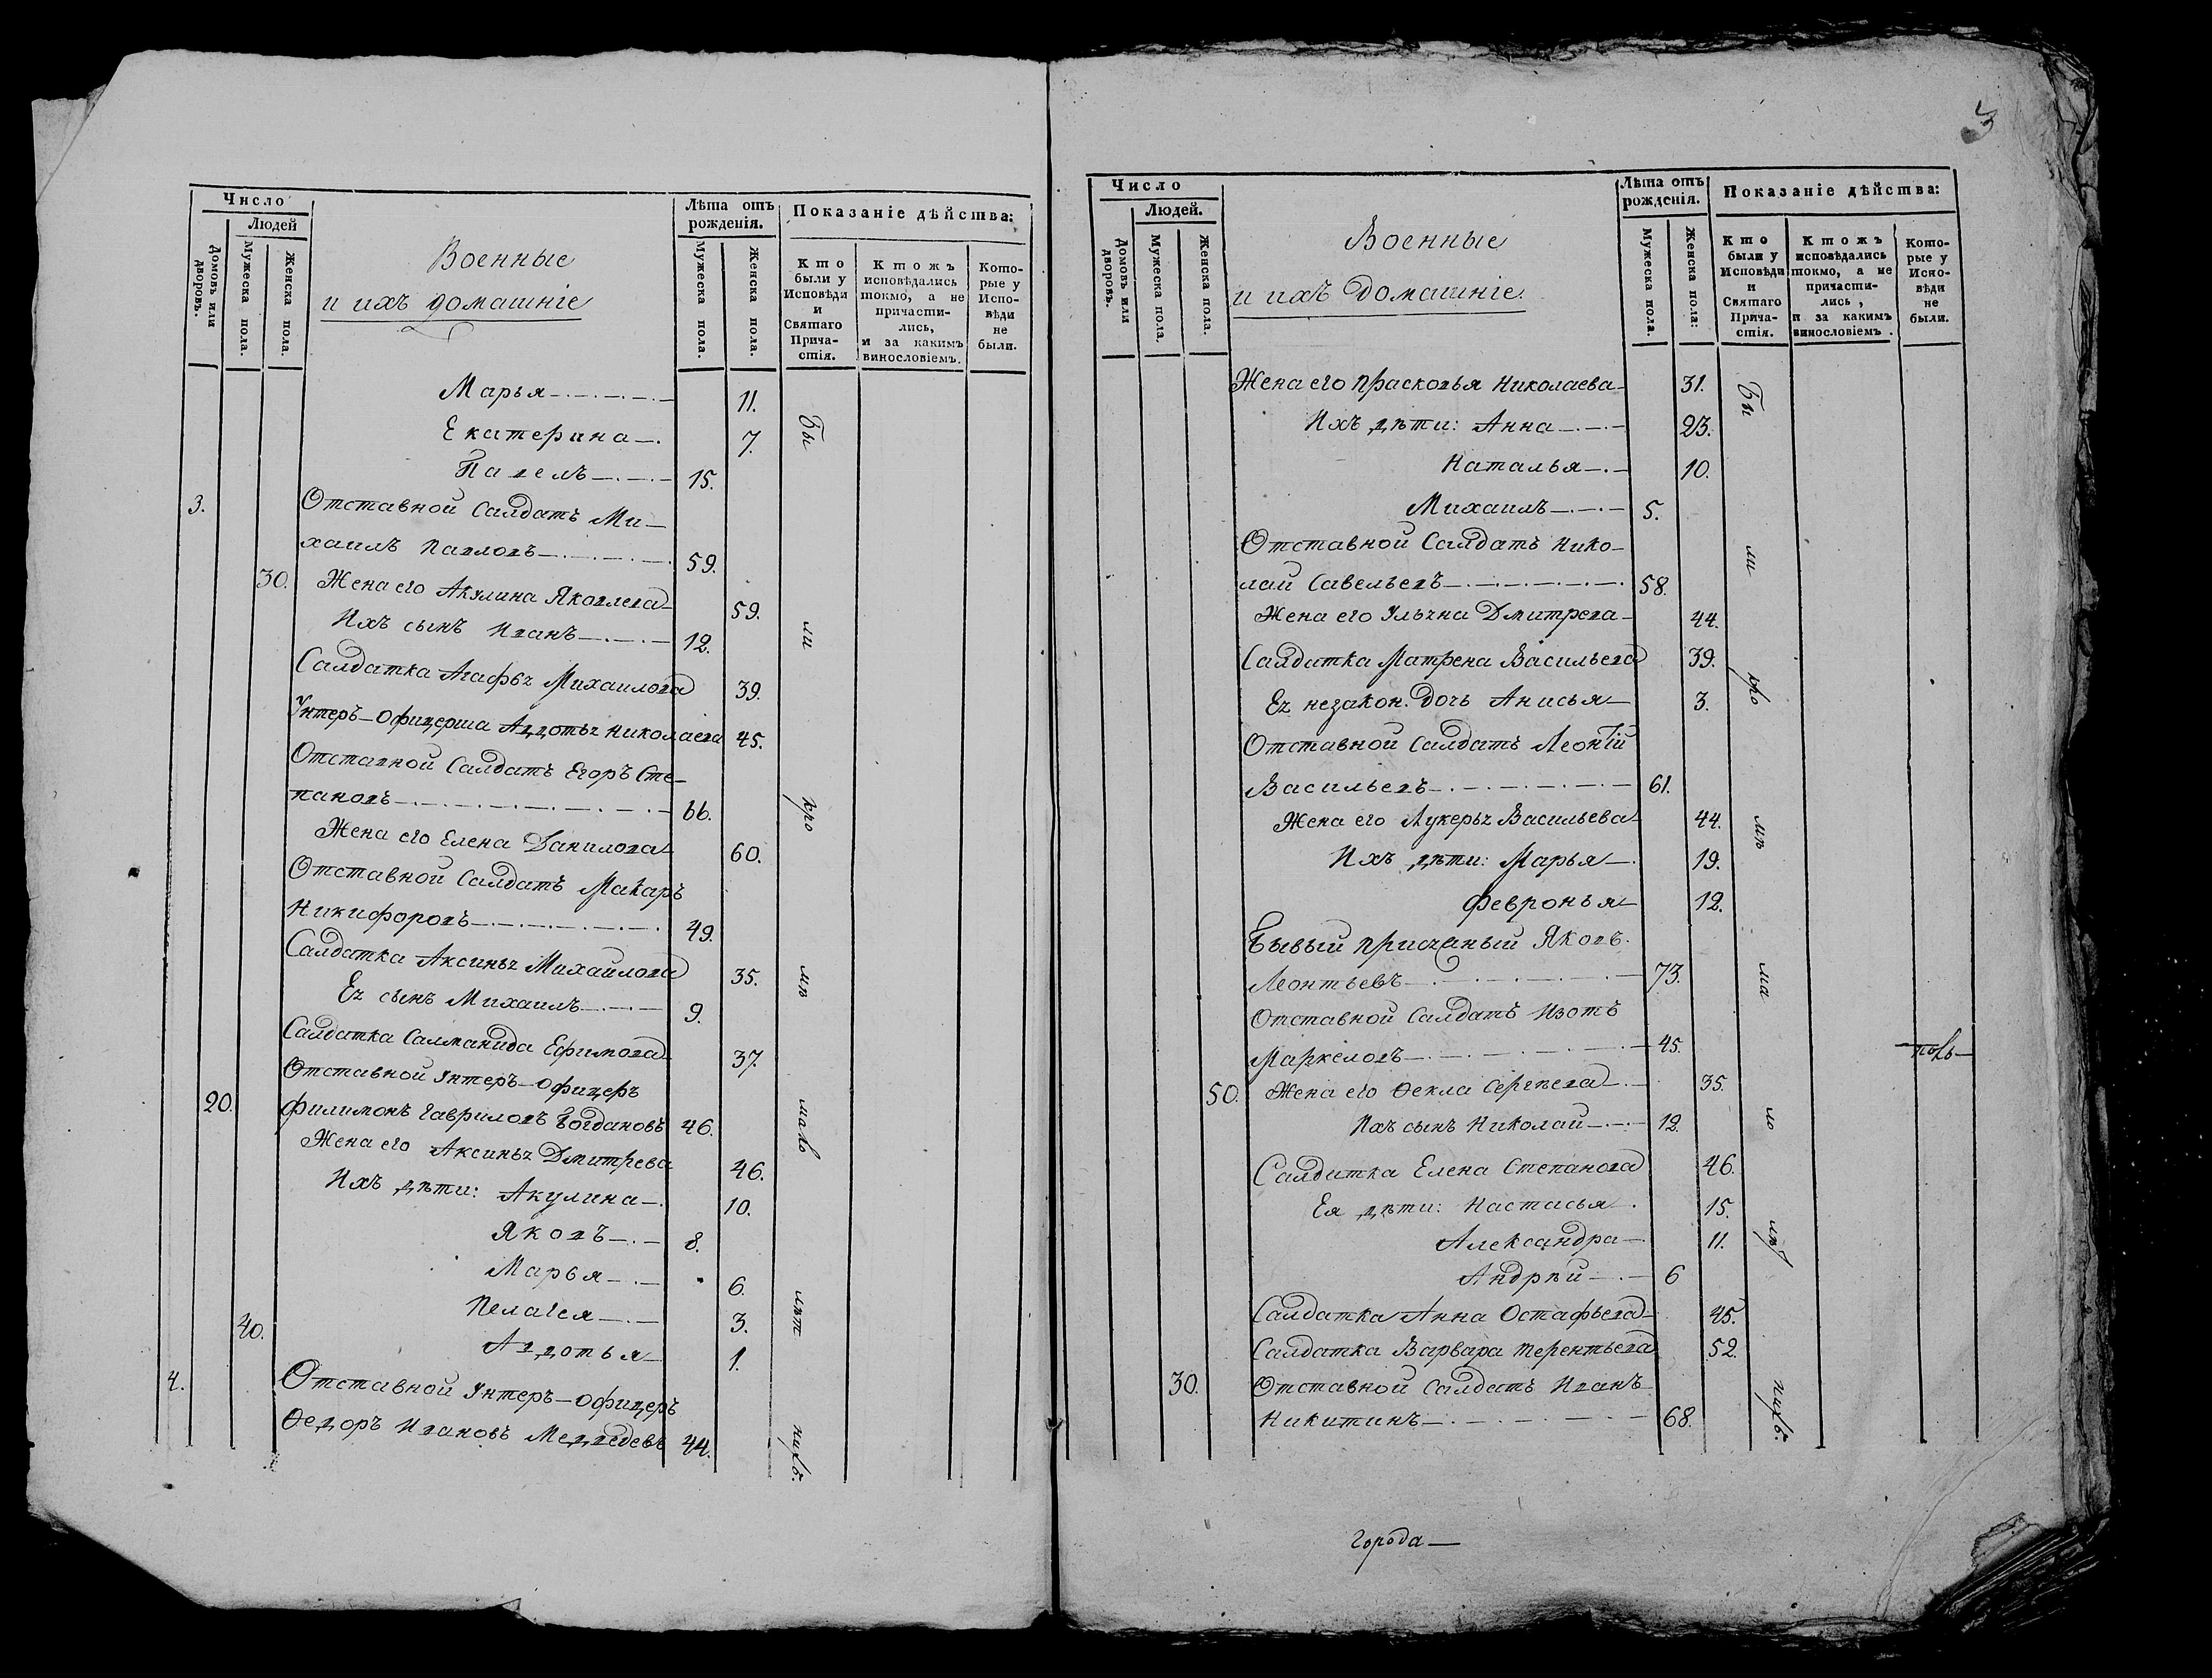 Число
Людей
Домовъ или дворовъ.
Мужеска пола.
Женска пола.
Военные
и ихъ домашніе
Лѣта отъ рожденія.
Мужеска пола.
Женска пола.
Показаніе дѣйства:
Кто были у Исповѣди и Святаго Прича-стія.
Ктожъ исповѣдались токмо, а не причасти-лись, и за какимъ винословіемъ.
Кото-рые у Испо-вѣди не были.
Марья 11.
Екатерина 7.
Павелъ 15.
3. Отставной Салдатъ Ми-
хаилъ Павловъ 59.
30. Жена его Акулина Яковлева 59.
Ихъ сынъ Иванъ 12.
Салдатка Агафья Михаилова 39.
Унтеръ-офицерша Авдотья Николаева 45.
Отставной Салдатъ Егоръ Сте-
пановъ 66.
Жена его Елена Данилова 60.
Отставной Салдатъ Макаръ
Никифоровъ 49.
Салдатка Аксинья Михаилова 35.
Ея сынъ Михаилъ 9.
Салдатка Салманида Ефимова 37.
Отставной Унтеръ-офицеръ
20. Филимонъ Гавриловъ Богдановъ 46.
Жена его Аксинья Дмитрева 46.
Ихъ дѣти: Акулина 10.
Яковъ 8.
Марья 6.
Пелагея 3.
40. Авдотья 1.
4. Отставной Унтеръ-офицеръ
Ѳедоръ Ивановъ Медведевъ 44.
Бы
ли
кро
мѣ
мало
лѣт
нихъ.
3
Число
Людей.
Домовъ или дворовъ.
Мужеска пола.
Женска пола.
Военные
и ихъ домашніе.
Лѣта отъ рожденія.
Мужеска пола.
Женска пола:
Показаніе дѣйства:
Кто были у Исповѣди и Святаго Прича-стія.
Ктожъ исповѣдались токмо, а не причасти-лись, и за какимъ винословіемъ.
Кото-рые у Испо-вѣди не были.
Жена его Прасковья Николаева 31.
Ихъ дѣти: Анна 23.
Наталья 10.
Михаилъ 5.
Отставной Салдатъ Нико-
лай Савельевъ 58.
Жена его Ульяна Дмитрева 44.
Салдатка Матрена Васильева 39.
Ея незакон. дочь Анисья 3.
Отставной Салдатъ Леонтій
Васильевъ 61.
Жена его Лукерья Васильева 44.
Ихъ дѣти: Марья 19.
Февронья 12.
Бывый Присяжный Яковъ
Леонтьевъ 73.
Отставной Салдатъ Изотъ
Маркеловъ 45.
50. Жена его Ѳекла Сергѣева 35.
Ихъ сынъ Николай 12.
Салдатка Елена Степанова 46.
Ея дѣти: Настасья 15.
Александра 11.
Андрѣй 6
Салдатка Анна Остафьева 45.
Салдатка Варвара Терентьева 52.
30. Отставной Салдатъ Иванъ
Никитинъ 68.
Бы
ли
кро
мѣ
ма
ло
лѣт
нихъ.
Города